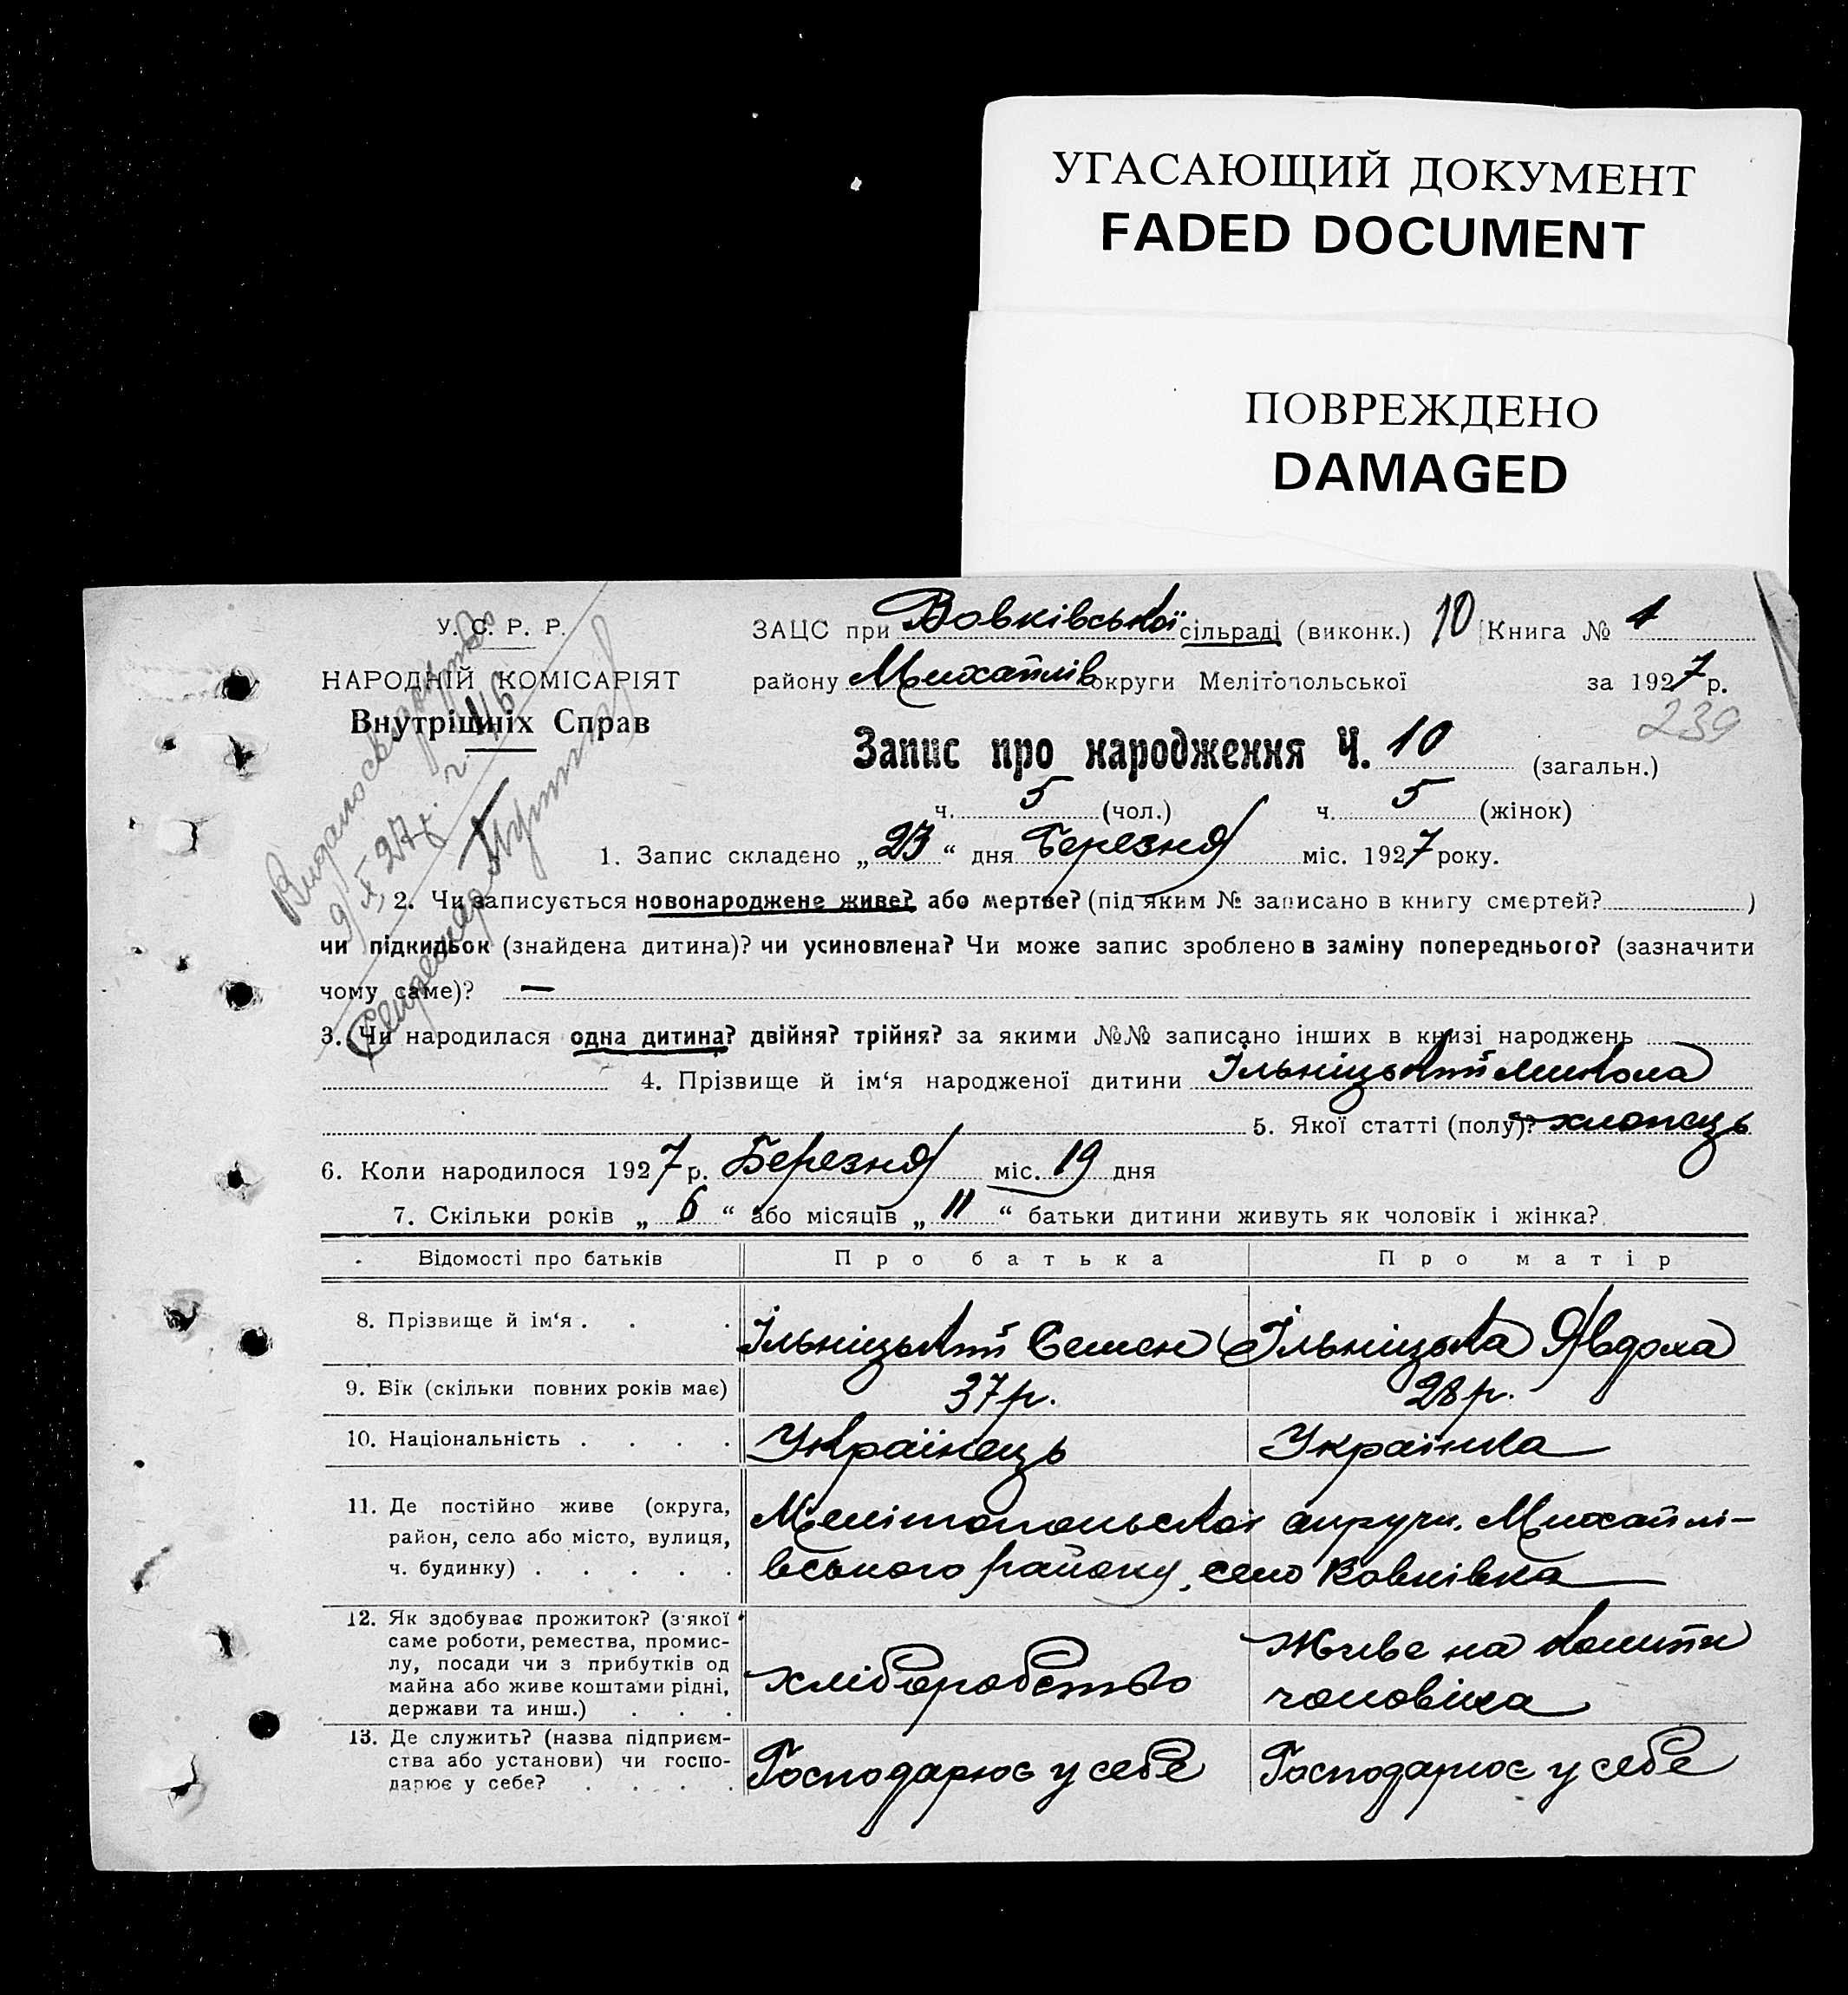 УГАСАЮЩИЙ ДОКУМЕНТ
FADED DOCUMENT
ПОВРЕЖДЕНО
DAMAGED
У. С. Р. Р.
НАРОДНІЙ КОМІСАРІЯТ
Внутрішніх Справ
ЗАЦС при Вовківської сільраді (виконк.) 10 Книга № 1
району Михайлів округи Мелітопольської за 1927 р.
239
Запис про народження Ч. 10 (загальн.)
ч. 5 (чол.) ч. 5 (жінок)
1. Запис складено „ 23 “ дня Березня міс. 1927 року.
2. Чи записується новонароджене живе? або мертве? (під яким № записано в книгу смертей? )
чи підкидьок (знайдена дитина)? чи усиновлена? Чи може запис зроблено в заміну попереднього? (зазначити
чому саме)? —
3. Чи народилася одна дитина? двійня? трійня? за якими №№ записано інших в книзі народжень
4. Прізвище й ім‘я народженої дитини Ільніцький Микола
5. Якої статті (полу)? хлопець
6. Коли народилося 1927 р. Березня міс. 19 дня
7. Скільки років „ 6 “ або місяців „ 11 “ батьки дитини живуть як чоловік і жінка?
Відомості про батьків Про батька Про матір
8. Прізвище й ім‘я . . . Ільніцький Семен Ільніцька Явдоха
9. Вік (скільки повних років має) 37 р. 28 р.
10. Національність . . . . Українець Українка
11. Де постійно живе (округа, район, село або місто, вулиця, ч. будинку) . . . . . Мелітопольської округи. Михайлі-
вського району, село Вовківка
12. Як здобуває прожиток? (з якої
саме роботи, ремества, промис-
лу, посади чи з прибутків од
майна або живе коштами рідні,
держави та инш.) . . .
хліборобство Живе на кошти
чоловіка
13. Де служить? (назва підприєм-
ства або установи) чи госпо-
дарює у себе? . . . .
Господарює у себе Господарює у себе